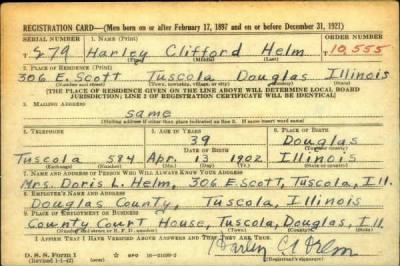 REGISTRATION CARD—(Men born on or after February 17, 1897 and on or before December 31, 1921)
SERIAL NUMBER 1. NAME (Print) ORDER NUMBER
S 279 Harley Clifford Helm 10,555
(First) (Middle) (Last)
2. PLACE OF RESIDENCE (Print)
306 E. Scott Tuscola Douglas Illinois
(Number and street) (Town, township, village, or city) (County) (State)
[THE PLACE OF RESIDENCE GIVEN ON THE LINE ABOVE WILL DETERMINE LOCAL BOARD
JURISDICTION; LINE 2 OF REGISTRATION CERTIFICATE WILL BE IDENTICAL]
3. MAILING ADDRESS
same
[Mailing address if other than place indicated on line 2. If same insert word same]
4. TELEPHONE 5. AGE IN YEARS 6. PLACE OF BIRTH
39 Douglas
DATE OF BIRTH
Tuscola 584 Apr. 13 1902 Illinois
7. NAME AND ADDRESS OF PERSON WHO WILL ALWAYS KNOW YOUR ADDRESS
Mrs. Doris L. Helm, 306 E. Scott, Tuscola, Ill.
8. EMPLOYER'S NAME AND ADDRESS
Douglas County, Tuscola, Illinois
9. PLACE OF EMPLOYMENT OR BUSINESS
County Court House, Tuscola, Douglas, Ill.
(Number and street or R. F. D. number) (Town) (County) (State)
I AFFIRM THAT I HAVE VERIFIED ABOVE ANSWERS AND THAT THEY ARE TRUE.
D. S. S. Form 1
(Revised 1-1-42) GPO
Harley C. Helm